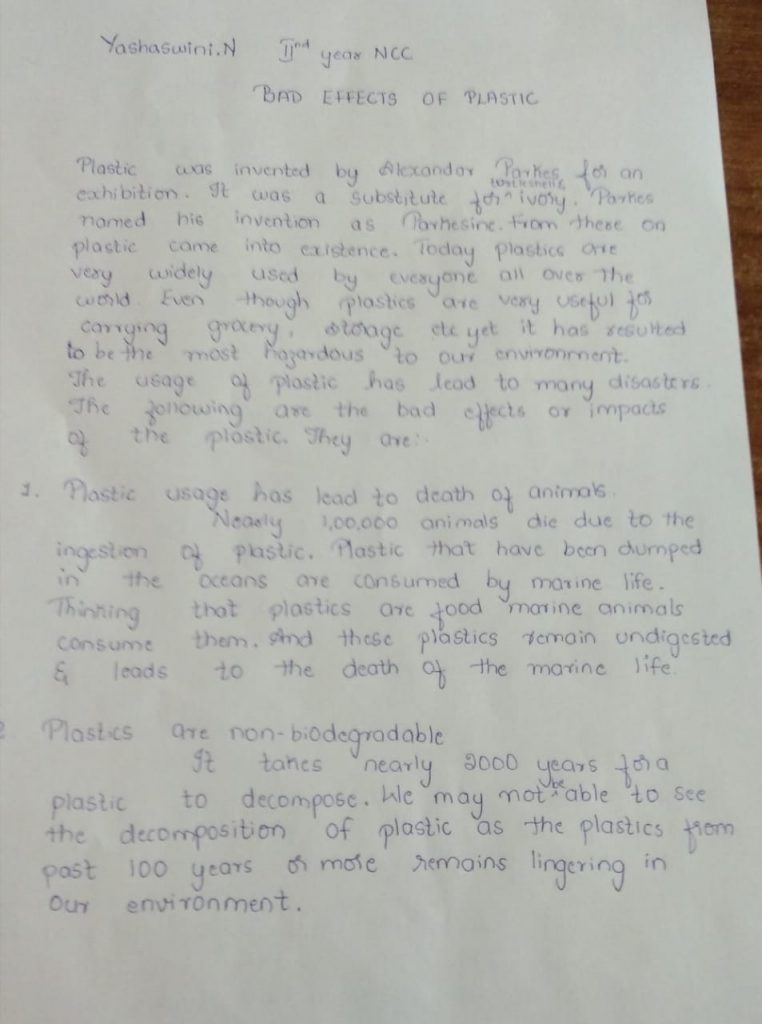 Yashaswini.N IInd year NCC
BAD EFFECTS OF PLASTIC
Plastic was invented by Alexandar Parkes for an
exhibition. It was a substitute for tortleshell & ivory. Parkes
named his invention as Parkesine. From there on
plastic came into existence. Today plastics are
very widely used by everyone all over The
world. Even though plastics are very useful for
carrying grocery, storage etc yet it has resulted
to be the most hazardous to our environment.
The usage of plastic has lead to many disasters.
The following are the bad effects or impacts
of the plastic. They are:-
1. Plastic usage has lead to death of animals.
Nearly 1,00,000 animals die due to the
ingestion of plastic. Plastic that have been dumped
in the oceans are consumed by marine life.
Thinking that plastics are food marine animals
consume them. And these plastics remain undigested
& leads to the death of the marine life.
2 Plastics are non-biodegradable
It takes nearly 2000 years for a
plastic to decompose. We may not be able to see
the decomposition of plastic as the plastics from
past 100 years or more remains lingering in
our environment.